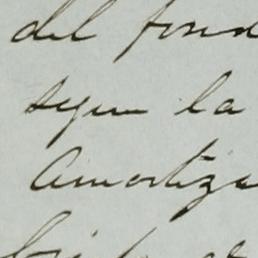 del fond
segun la
Amortiza